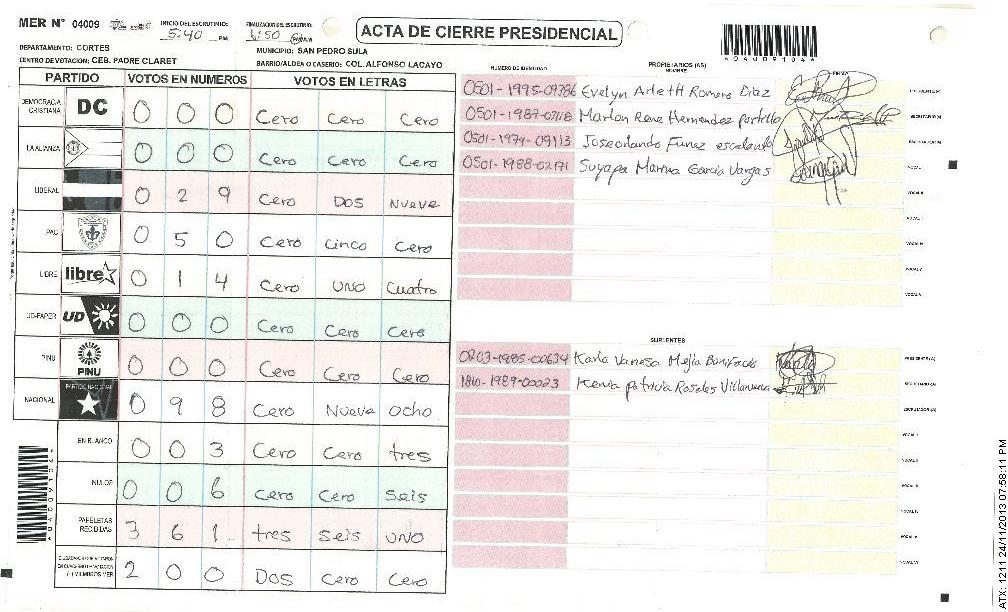 MER N° 04009
INICIO DEL ESCRUTINIO: 5:40 PM
FINALIZACION DEL ESCRUTINIO: 6:50 PM
ACTA DE CIERRE PRESIDENCIAL
DEPARTAMENTO: CORTES
MUNICIPIO: SAN PEDRO SULA
CENTRO DE VOTACION: CEB. PADRE CLARET
BARRIO/ALDEA O CASERIO: COL. ALFONSO LACAYO
PARTIDO VOTOS EN NUMEROS VOTOS EN LETRAS
DEMOCRACIA CRISTIANA DC 0 0 0 Cero Cero Cero
LA ALIANZA 0 0 0 Cero Cero Cero
LIBERAL 0 2 9 Cero Dos Nueve
PAC 0 5 0 Cero Cinco Cero
LIBRE libre 0 1 4 Cero UNO Cuatro
UD-FAPER UD 0 0 0 Cero Cero Cero
PINU PINU 0 0 0 Cero Cero Cero
NACIONAL PARTIDO NACIONAL 0 9 8 Cero Nueve Ocho
EN BLANCO 0 0 3 Cero Cero tres
NULOS 0 0 6 Cero Cero Seis
PAPELETAS RECIBIDAS 3 6 1 tres Seis UNO
2 0 0 DOS Cero Cero
NUMERO DE IDENTIDAD PROPIETARIOS (AS) NOMBRE FIRMA
Evelyn Arleth Romero Diaz PRESIDENTE (A)
Marlon Rene Hernandez portillo SECRETARIO (A)
0501-1979-09113 Jose orlando Funez escalante ESCRUTADOR (A)
0501-1988-02171 Suyapa Marina Garcia Vargas VOCAL I
VOCAL II
VOCAL III
VOCAL IV
VOCAL V
SUPLENTES
0203-1985-00634 Karla Vanesa Mejia Bonifacio PRESIDENTE (A)
1810-1989-00023 Kenia patricia Rosales Villanueva SECRETARIO (A)
ESCRUTADOR (A)
VOCAL I
VOCAL II
VOCAL III
VOCAL IV
VOCAL V
VOCAL VI
*0400910 4*
ATX: 1211 24/11/2013 07:58:11 PM